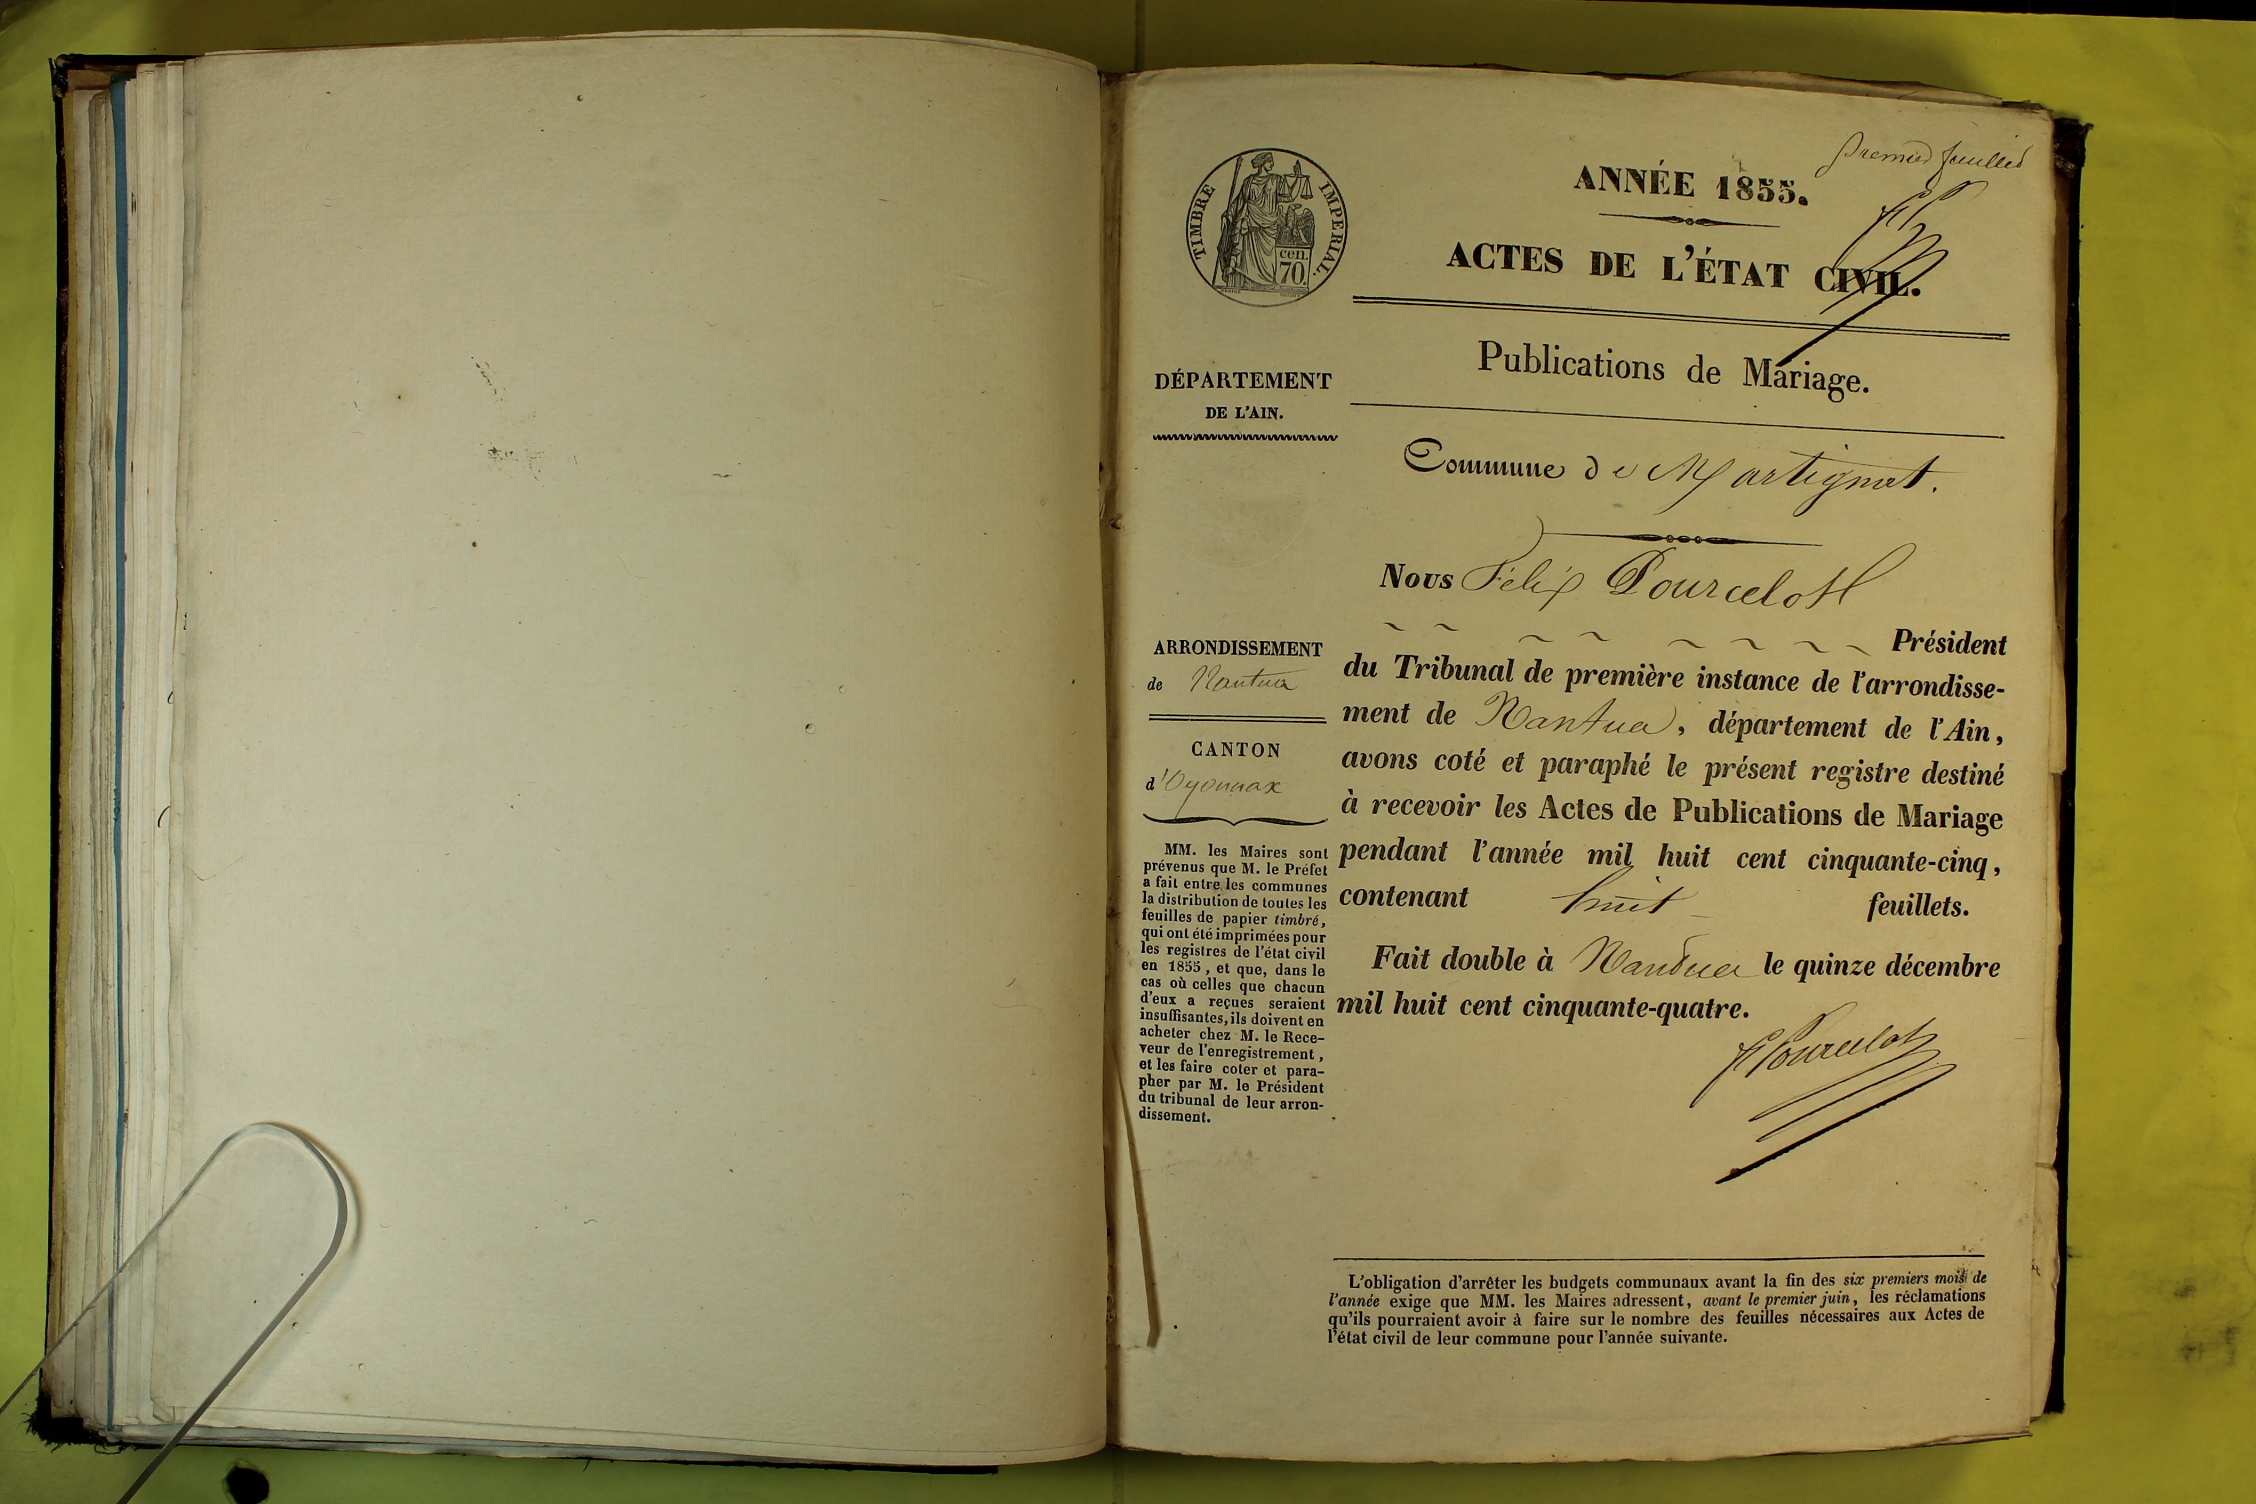 premier feuillet
ANNÉE 1855.
ACTES DE L'ÉTAT CIVIL.
TIMBRE IMPERIAL.
cen.
70.
Publications de Mariage.
DÉPARTEMENT
DE L'AIN.
Commune de Martignat.
Nous Félix Pourcelot
Président
du Tribunal de première instance de l'arrondisse-
ment de Nantua, département de l'Ain,
avons coté et paraphé le présent registre destiné
à recevoir les Actes de Publications de Mariage
pendant l'année mil huit cent cinquante-cinq,
contenant huit feuillets.
Fait double à Nantua le quinze décembre
mil huit cent cinquante-quatre.
F Pourcelot
ARRONDISSEMENT
de Nantua
CANTON
d'Oyonnax
MM. les Maires sont
prévenus que M. le Préfet
a fait entre les communes
la distribution de toutes les
feuilles de papier timbré,
qui ont été imprimées pour
les registres de l'état civil
en 1855, et que, dans le
cas où celles que chacun
d'eux a reçues seraient
insuffisantes, ils doivent en
acheter chez M. le Rece-
veur de l'enregistrement,
et les faire coter et para-
pher par M. le Président
du tribunal de leur arron-
dissement.
L'obligation d'arrêter les budgets communaux avant la fin des six premiers mois de
l'année exige que MM. les Maires adressent, avant le premier juin, les réclamations
qu'ils pourraient avoir à faire sur le nombre des feuilles nécessaires aux Actes de
l'état civil de leur commune pour l'année suivante.